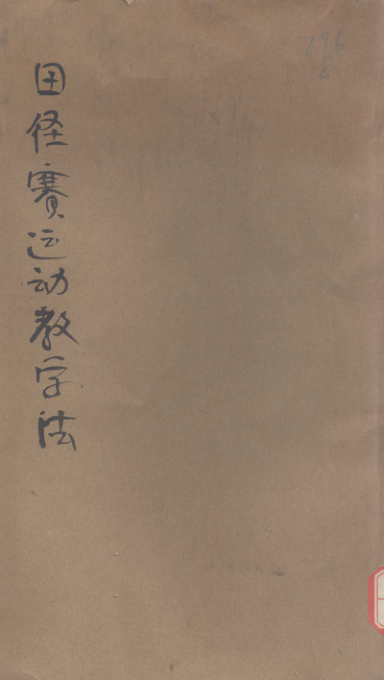 田径賽运动教学法
796